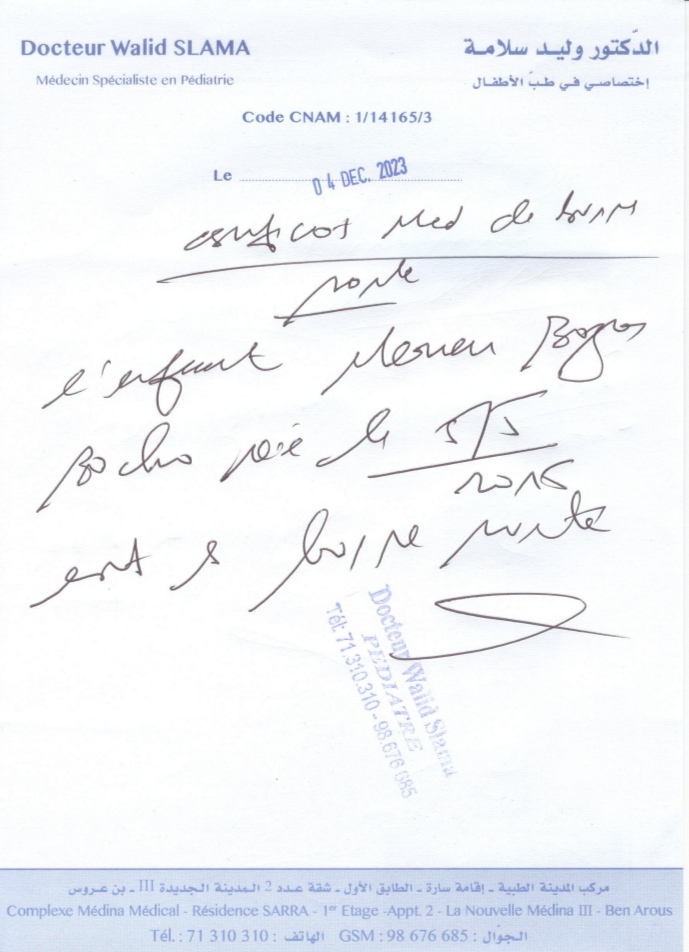 Docteur Walid SLAMA
الدّكتور وليد سلامة
Médecin Spécialiste en Pédiatrie
إختصاصي في طبّ الأطفال
Code CNAM : 1/14165/3
Le 04 DEC. 2023
certificat Med de bonne
sante
l'enfant
née le 5/5
2015
est en bonne sante
Docteur Walid Slama
PEDIATRE
Tél: 71.310.310 - 98.676 685
مركب المدينة الطبية - إقامة سارة - الطابق الأول - شقة عدد 2 المدينة الجديدة III - بن عروس
Complexe Médina Médical - Résidence SARRA - 1er Etage -Appt. 2 - La Nouvelle Médina III - Ben Arous
Tél. : 71 310 310 : الهاتف GSM : 98 676 685 : الجوّال